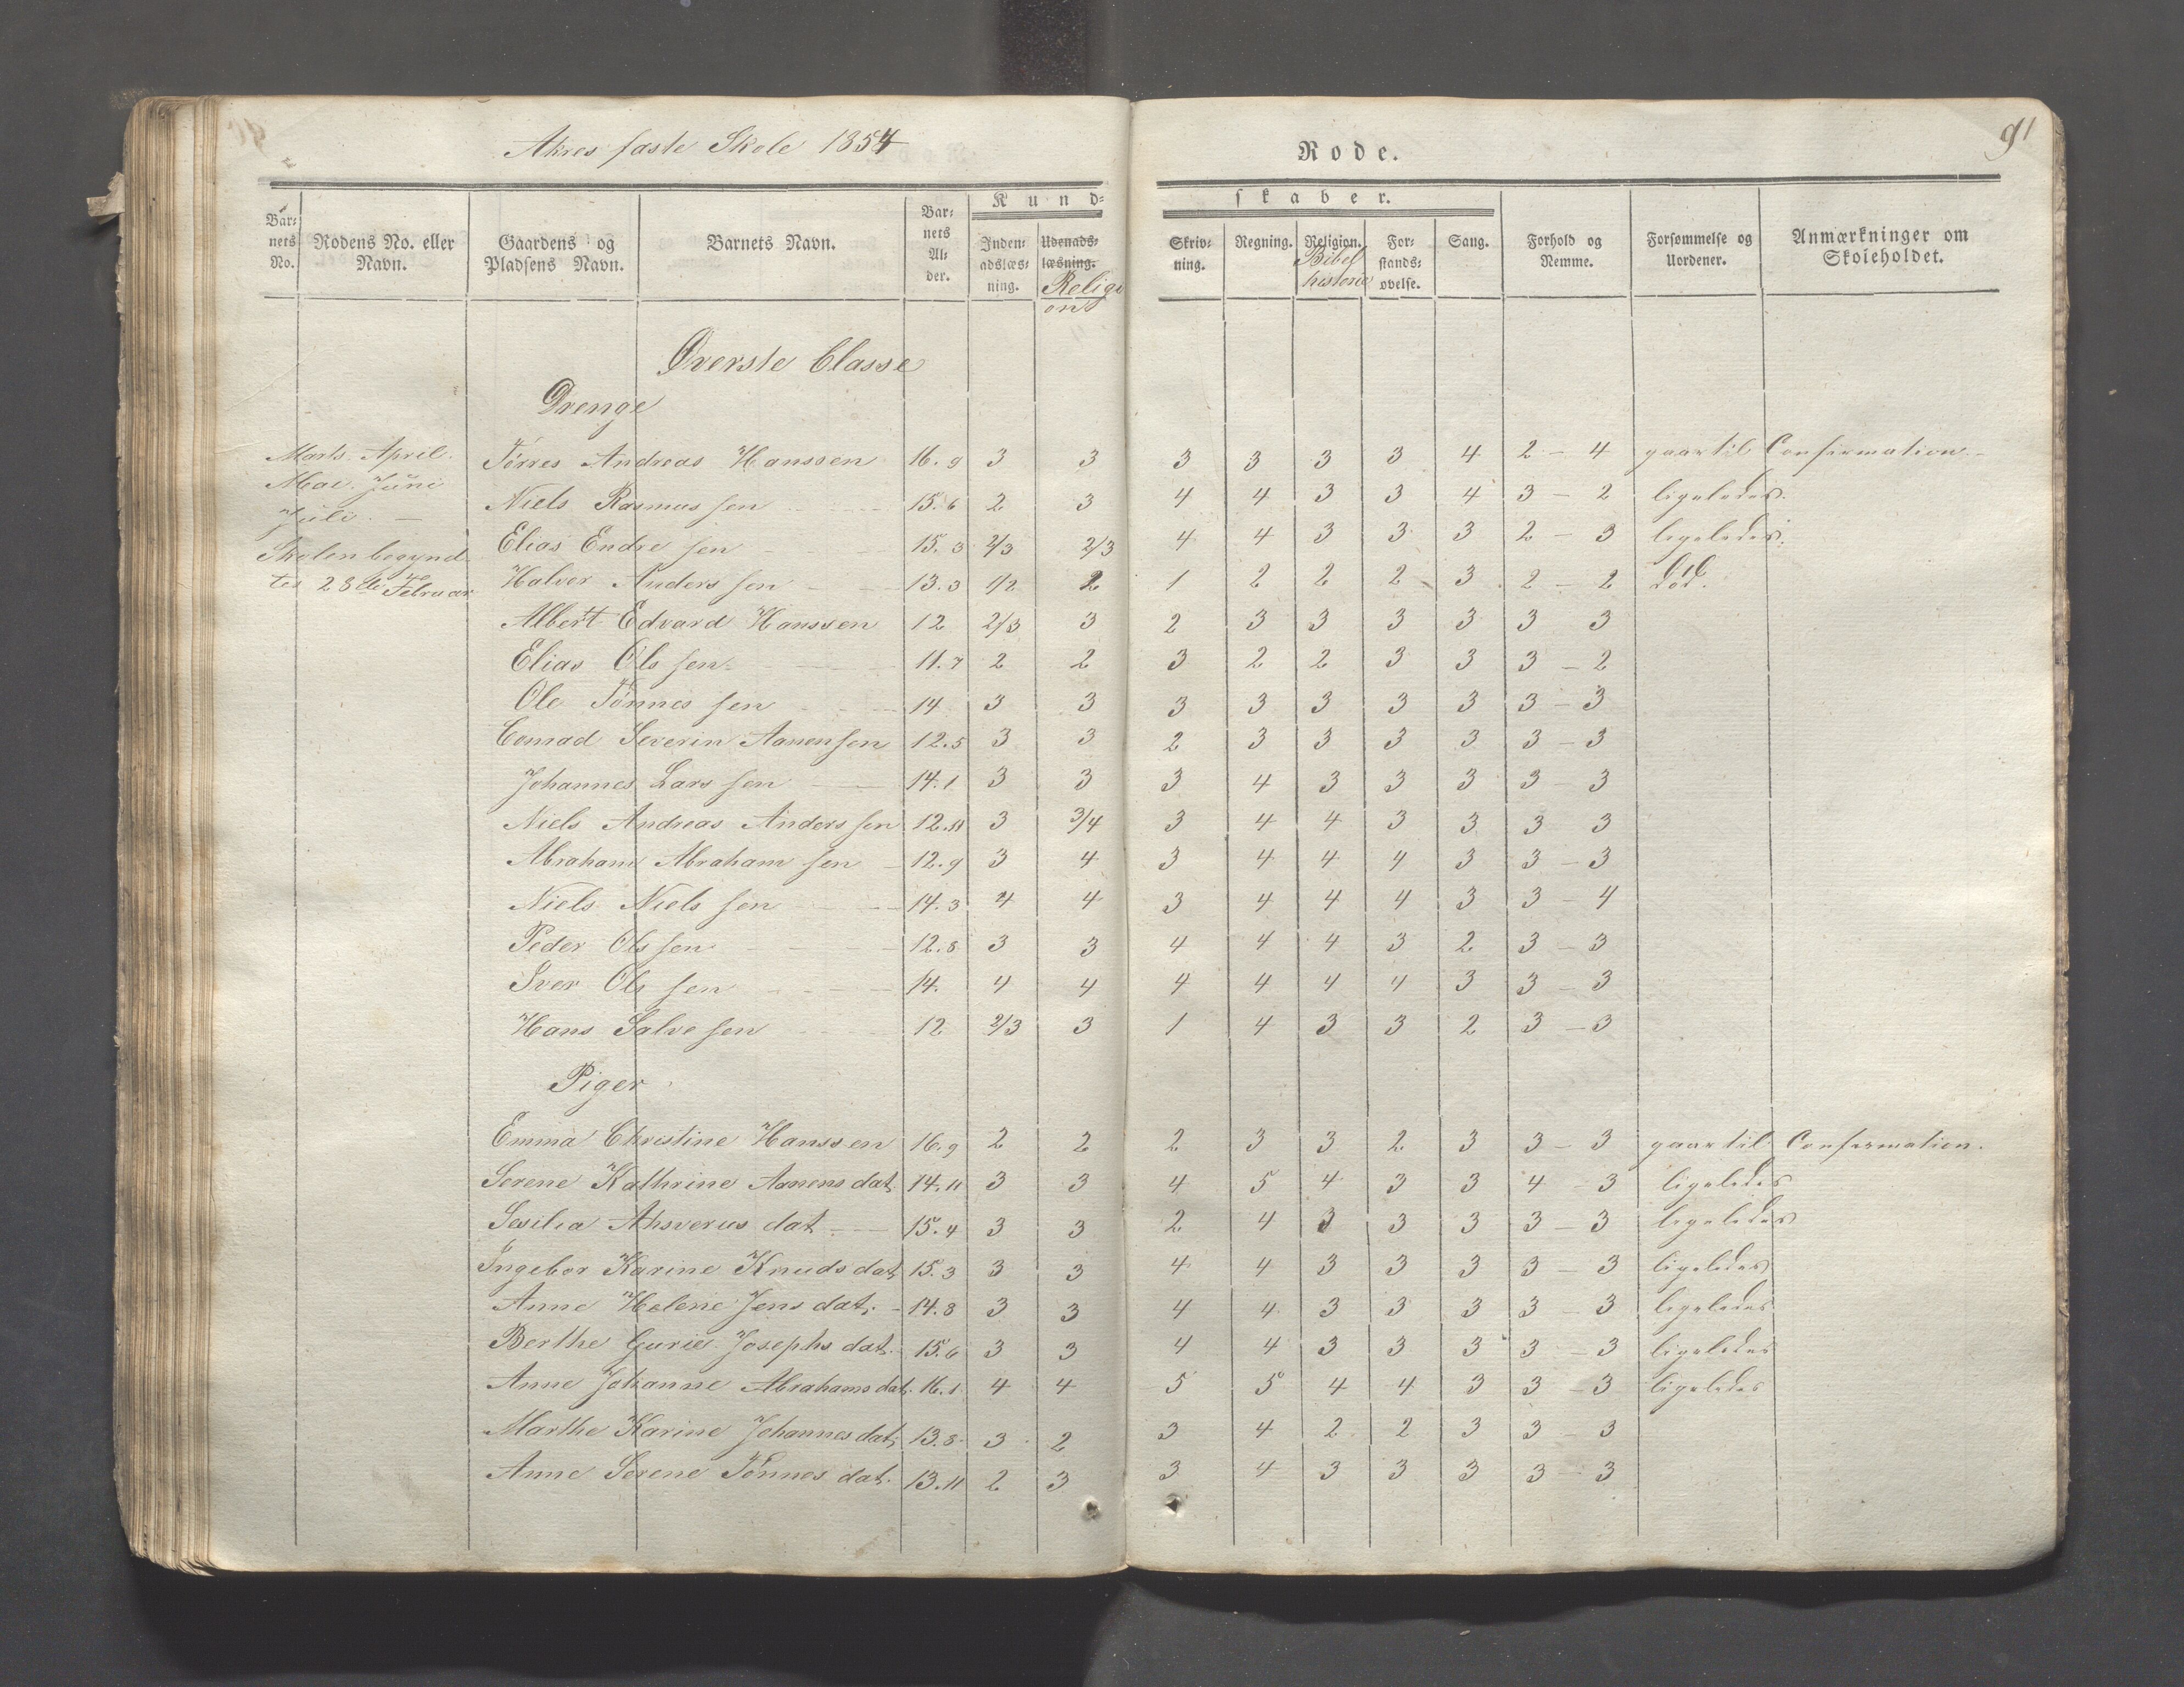 Akres faste Skole 1854
Rode.
91
Bar-
nets
No.
Rodens No. eller
Navn.
Gaardens og
Pladsens Navn.
Barnets Navn.
Bar-
nets
Al-
der.
Kund-
skaber.
Inden-
adslæs-
ning.
Udenads-
læsning.
Religi
on
Skriv-
ning.
Regning.
Religion.
Bibel
historie
For-
stands-
øvelse.
Sang.
Forhold og
Nemme.
Forsømmelse og
Uordener.
Anmærkninger om
Skoleholdet.
Øverste Classe
Drenge
Marts. April.
Mai. Juni
Juli. —
Skolen begynd
tes 28de Februar
Tørres Andreas Hanssen 16.9 3 3 3 3 3 3 4 2 - 4 gaar til Confirmation.
Niels Rasmussen 15.6 2 3 4 4 3 3 4 3 - 2 ligeledes.
Elias Endresen 15.3 2/3 2/3 4 4 3 3 3 2 - 3 ligeledes.
Halvor Anderssen 13.3 1/2 2 1 2 2 2 3 2 - 2 død.
Albert Edvard Hanssen 12 2/3 3 2 3 3 3 3 3 3
Elias Olssen 11.7 2 2 3 2 2 3 3 3 - 2
Ole Tønnessen 14 3 3 3 3 3 3 3 3 - 3
Conrad Severin Aanensen 12.5 3 3 2 3 3 3 3 3 - 3
Johannes Larssen 14.1 3 3 3 4 3 3 3 3 - 3
Niels Andreas Anderssen 12.11 3 3/4 3 4 4 3 3 3 3
Abraham Abrahamsen 12.9 3 4 3 4 4 4 3 3 - 3
Niels Nielssen 14.3 4 4 3 4 4 4 3 3 - 4
Peder Olssen 12.8 3 3 4 4 4 3 2 3 - 3
Iver Olssen 14. 4 4 4 4 4 4 3 3 - 3
Hans Salvesen 12 2/3 3 1 4 3 3 2 3 - 3
Piger
Emma Christine Hanssen 16.9 2 2 2 3 3 2 3 3 - 3 gaar til Confirmation.
Serene Kathrine Aanensdat. 14.11 3 3 4 5 4 3 3 4 - 3 ligeledes
Sesilia Ahsverus dat 15.4 3 3 2 4 3 3 3 3 - 3 ligeledes
Ingebor Karine Knudsdat. 15.3 3 3 4 4 3 3 3 3 - 3 ligeledes
Anne Helene Jens dat. 14.8 3 3 4 4 3 3 3 3 - 3 ligeledes
Berthe Gurie Josephs dat. 15.6 3 3 4 4 3 3 3 3 - 3 ligeledes
Anne Johanne Abrahamsdat. 16.1 4 4 5 5 4 4 3 3 - 3 ligeledes
Marthe Karine Johannesdat. 13.8 3 2 3 4 2 2 3 3 - 3
Anne Serene Tønnes dat. 13.11 2 3 3 4 3 3 3 3 - 3